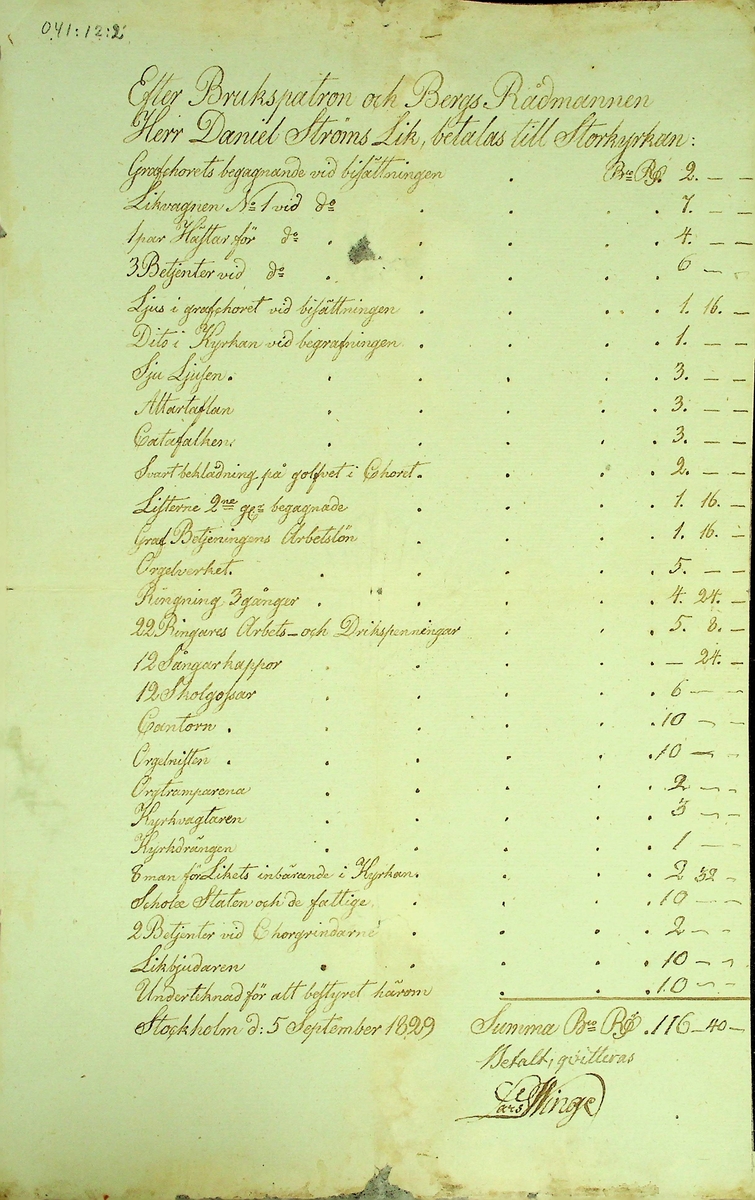 041:12:2
Efter Brukspatron och Bergs Rådmannen
Herr Daniel Ströms Lik, betalas till Storkyrkan:
Grafchorets begagnande vid bisättningen . Bco Rd. 2. — —
Likvagnen No 1 vid do . . . 7. — —
1 par Hästar för do . . . . 4. — —
3 Betjenter vid do . . . . 6 — —
Ljus i grafchoret vid bisättningen . . . 1. 16. —
Dito i Kyrkan vid begrafningen . . . . 1. — —
Sju Ljusen . . . . . 3. — —
Altartaflan . . . . 3. — —
Catafalken . . . . 3. — —
Svart beklädning på golfvet i Choret . . . 2. — —
Listerne 2ne gr begagnade . . . 1. 16. —
Graf Betjeningens Arbetslön . . . 1. 16. —
Orgelverket . . . . . 5. — —
Ringning 3 gånger . . . . 4. 24. —
22 Ringares Arbets- och Drikspenningar . . 5. 8. —
12 Sångarkappor . . . — 24. —
12 Skolgossar . . . . 6 — —
Cantorn . . . . . 10 — —
Orgelnisten . . . . . 10 — —
Orgtramparena . . . . 2 — —
Kyrkvagtaren . . . . 3 — —
Kyrkdrängen . . . . 1 — —
8 man för Likets inbärande i Kyrkan . . . 2 32 —
Scholæ Staten och de fattige . . . 10 — —
2 Betjenter vid Chorgrindarne . . . 2 — —
Likbjudaren . . . . 10 — —
Undertecknad för alt bestyret härom . . . 10 — —
Stockholm d: 5 September 1829 Summa Bco Rd . 116 — 40 —
Betalt, qvitteras
Lars Winge